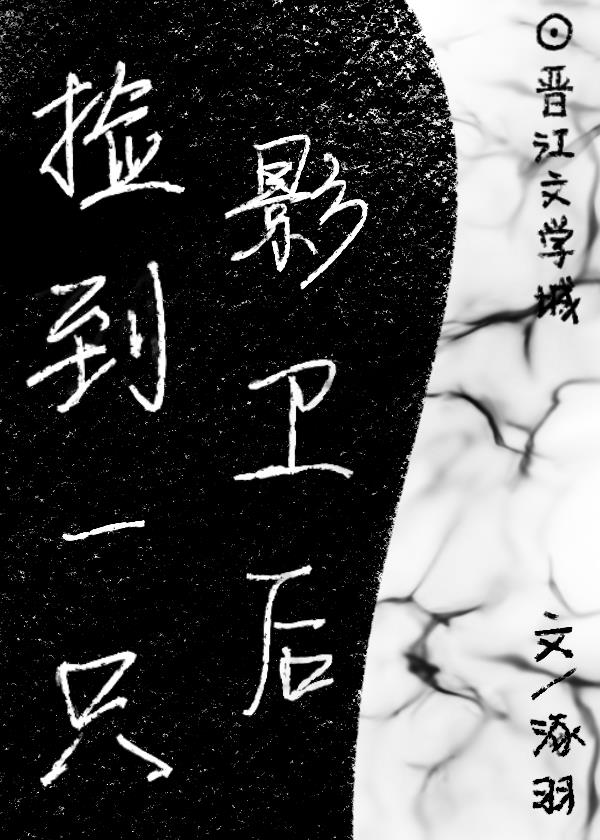 捡到一只
影卫后
⊙晋江文学城
文/涿羽